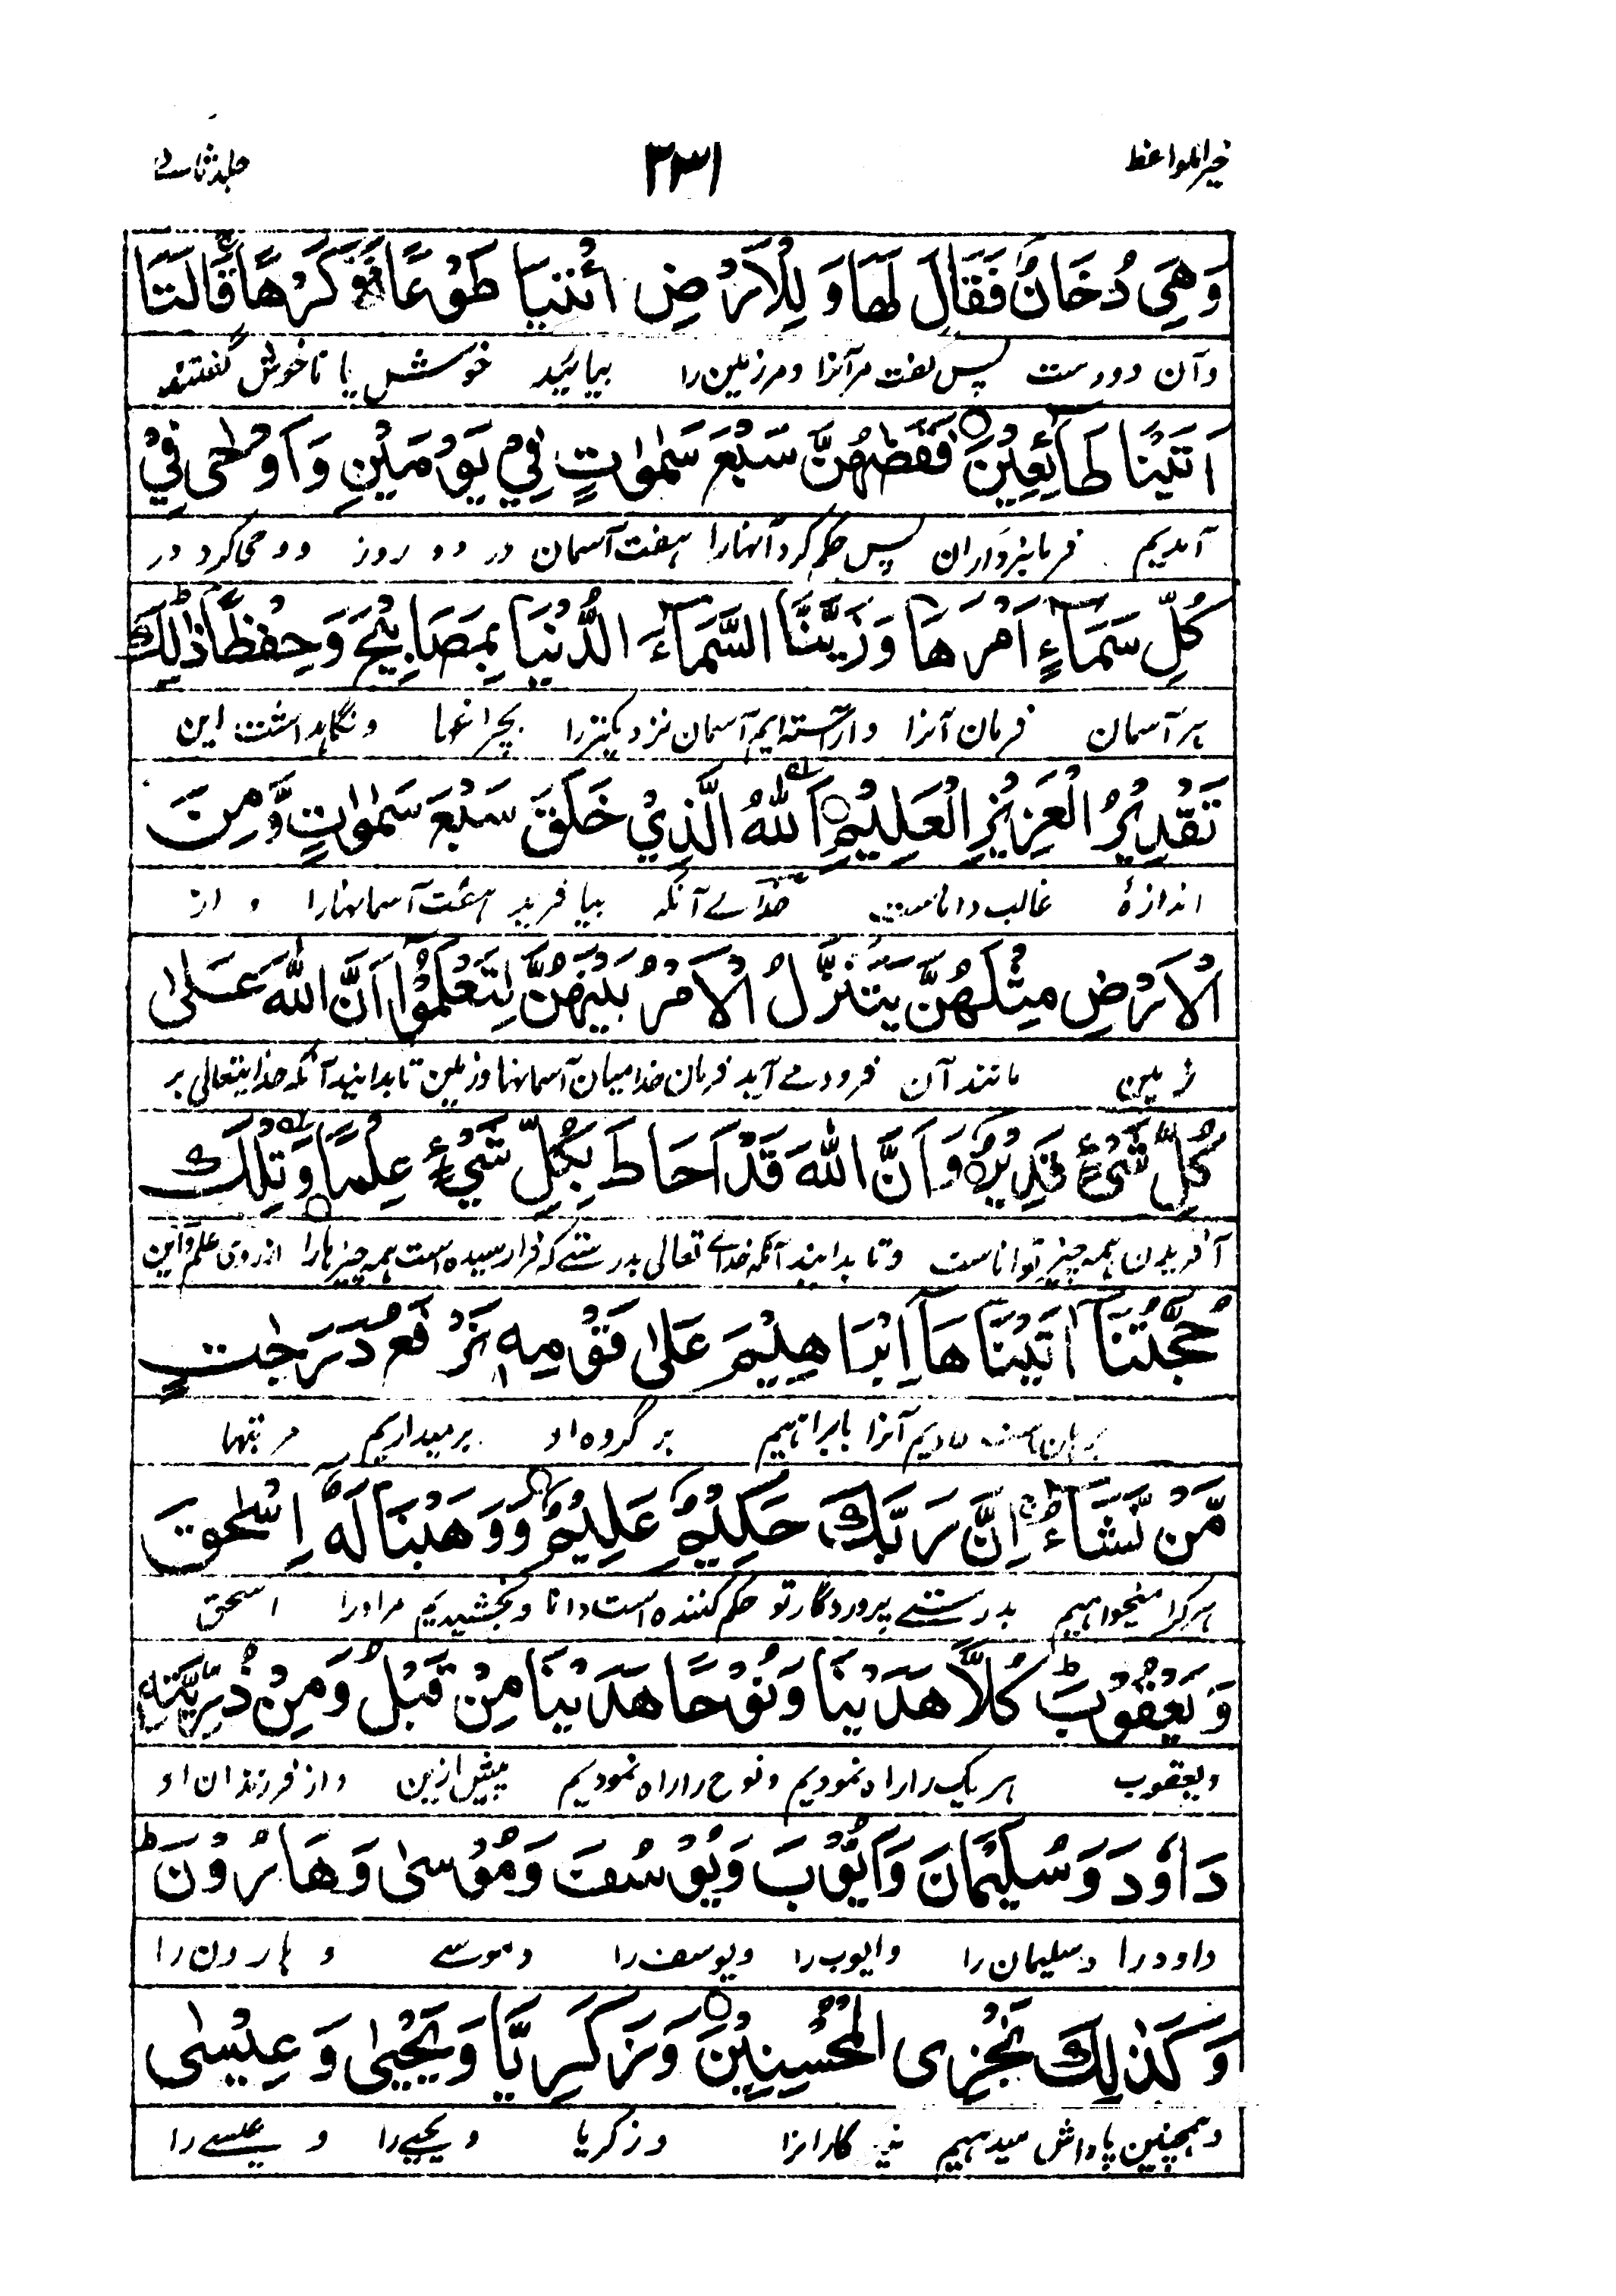 خیر المواعظ
۳۳۱
جلد ثانی
وَهِيَ دُخَانٌ فَقَالَ لَهَا وَ لِلْاَرْضِ ائْتِيَا طَوْعًا اَوْ كَرْهًا قَالَتَا
وآن دودست پس گفت مرآنرا ومرزمین را بیائید خوش یا ناخوش گفتند
اَتَيْنَا طَآئِعِيْنَ فَقَضٰهُنَّ سَبْعَ سَمٰوَاتٍ فِيْ يَوْمَيْنِ وَاَوْحٰى فِيْ
آمدیم فرمانبرداران پس حکم کرد آنهارا هفت آسمان در دو روز ووحی کرد در
كُلِّ سَمَآءٍ اَمْرَهَا وَزَيَّنَّا السَّمَآءَ الدُّنْيَا بِمَصَابِيْحَ وَحِفْظًا ذٰلِكَ
هر آسمان فرمان آنرا وآراسته ایم آسمان نزدیکتررا بچراغها ونگاهداشت این
تَقْدِيْرُ الْعَزِيْزِ الْعَلِيْمِ اَللّٰهُ الَّذِيْ خَلَقَ سَبْعَ سَمٰوٰتٍ وَّ مِنَ
اندازهٔ غالب داناست خدای آنکه بیافرید هفت آسمانهارا و از
الْاَرْضِ مِثْلَهُنَّ يَتَنَزَّلُ الْاَمْرُ بَيْنَهُنَّ لِتَعْلَمُوْا اَنَّ اللّٰهَ عَلٰى
زمین مانند آن فرود می آید فرمان خدا میان آسمانها وزمین تا بدانید آنکه خدایتعالی بر
كُلِّ شَيْءٍ قَدِيْرٌ وَاَنَّ اللّٰهَ قَدْ اَحَاطَ بِكُلِّ شَيْءٍ عِلْمًا وَ تِلْكَ
آفریدن همه چیز تواناست وتا بدانید آنکه خدای تعالی بدرستی که فرارسیده است همه چیزهارا ازروی علم واین
حُجَّتُنَا اٰتَيْنَاهَا اِبْرَاهِيْمَ عَلٰى قَوْمِهٖ نَرْفَعُ دَرَجٰتٍ
برهان ماست دادیم آنرا بابراهیم بر گروه او برمیداریم مرتبها
مَّنْ نَّشَآءُ اِنَّ رَبَّكَ حَكِيْمٌ عَلِيْمٌ وَوَهَبْنَا لَهٗ اِسْحٰقَ
هرکرا میخواهیم بدرستی پروردگار تو حکم کننده است دانا وبخشیدیم مراورا اسحق
وَ يَعْقُوْبَ كُلًّا هَدَيْنَا وَ نُوْحًا هَدَيْنَا مِنْ قَبْلُ وَ مِنْ ذُرِّيَّتِهٖ
ویعقوب هریک را راه نمودیم ونوح را راه نمودیم پیش ازین واز فرزندان او
دَاوٗدَ وَ سُلَيْمَانَ وَ اَيُّوْبَ وَ يُوْسُفَ وَ مُوْسٰى وَ هَارُوْنَ
داودرا وسلیمان را وایوب را ویوسف را وموسی و هارون را
وَ كَذٰلِكَ نَجْزِى الْمُحْسِنِيْنَ وَ زَكَرِيَّا وَ يَحْيٰى وَ عِيْسٰى
وهمچنین پاداش میدهیم کارانرا وزکریا ویحیی را و عیسی را